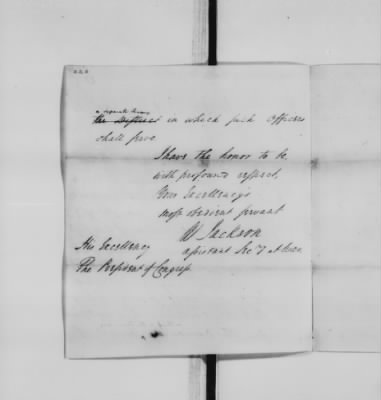 in which such Officers
shall serve
I have the honor to be,
with profound respect,
Your Excellency's
most obedient servant
W Jackson
assistant Sec'y at War.
His Excellency
The President of Congress